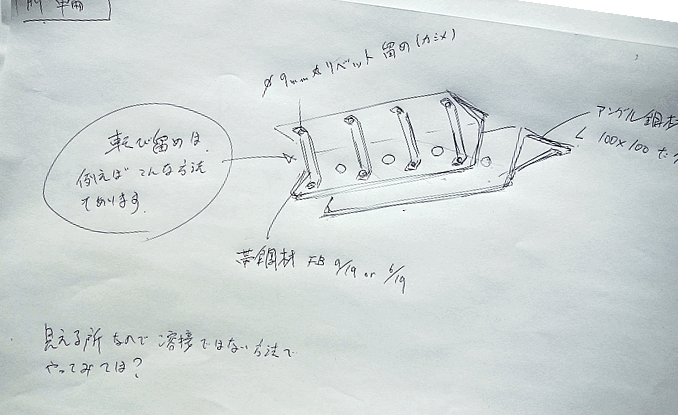 前輪
φ9mm丸リベット留め(カシメ)
転び留めは、
例えばこんな方法
であります。
アングル鋼材
L 100×100
帯鋼材 FB 9/19 or 6/19
見える所なので溶接ではない方法で
やってみては?